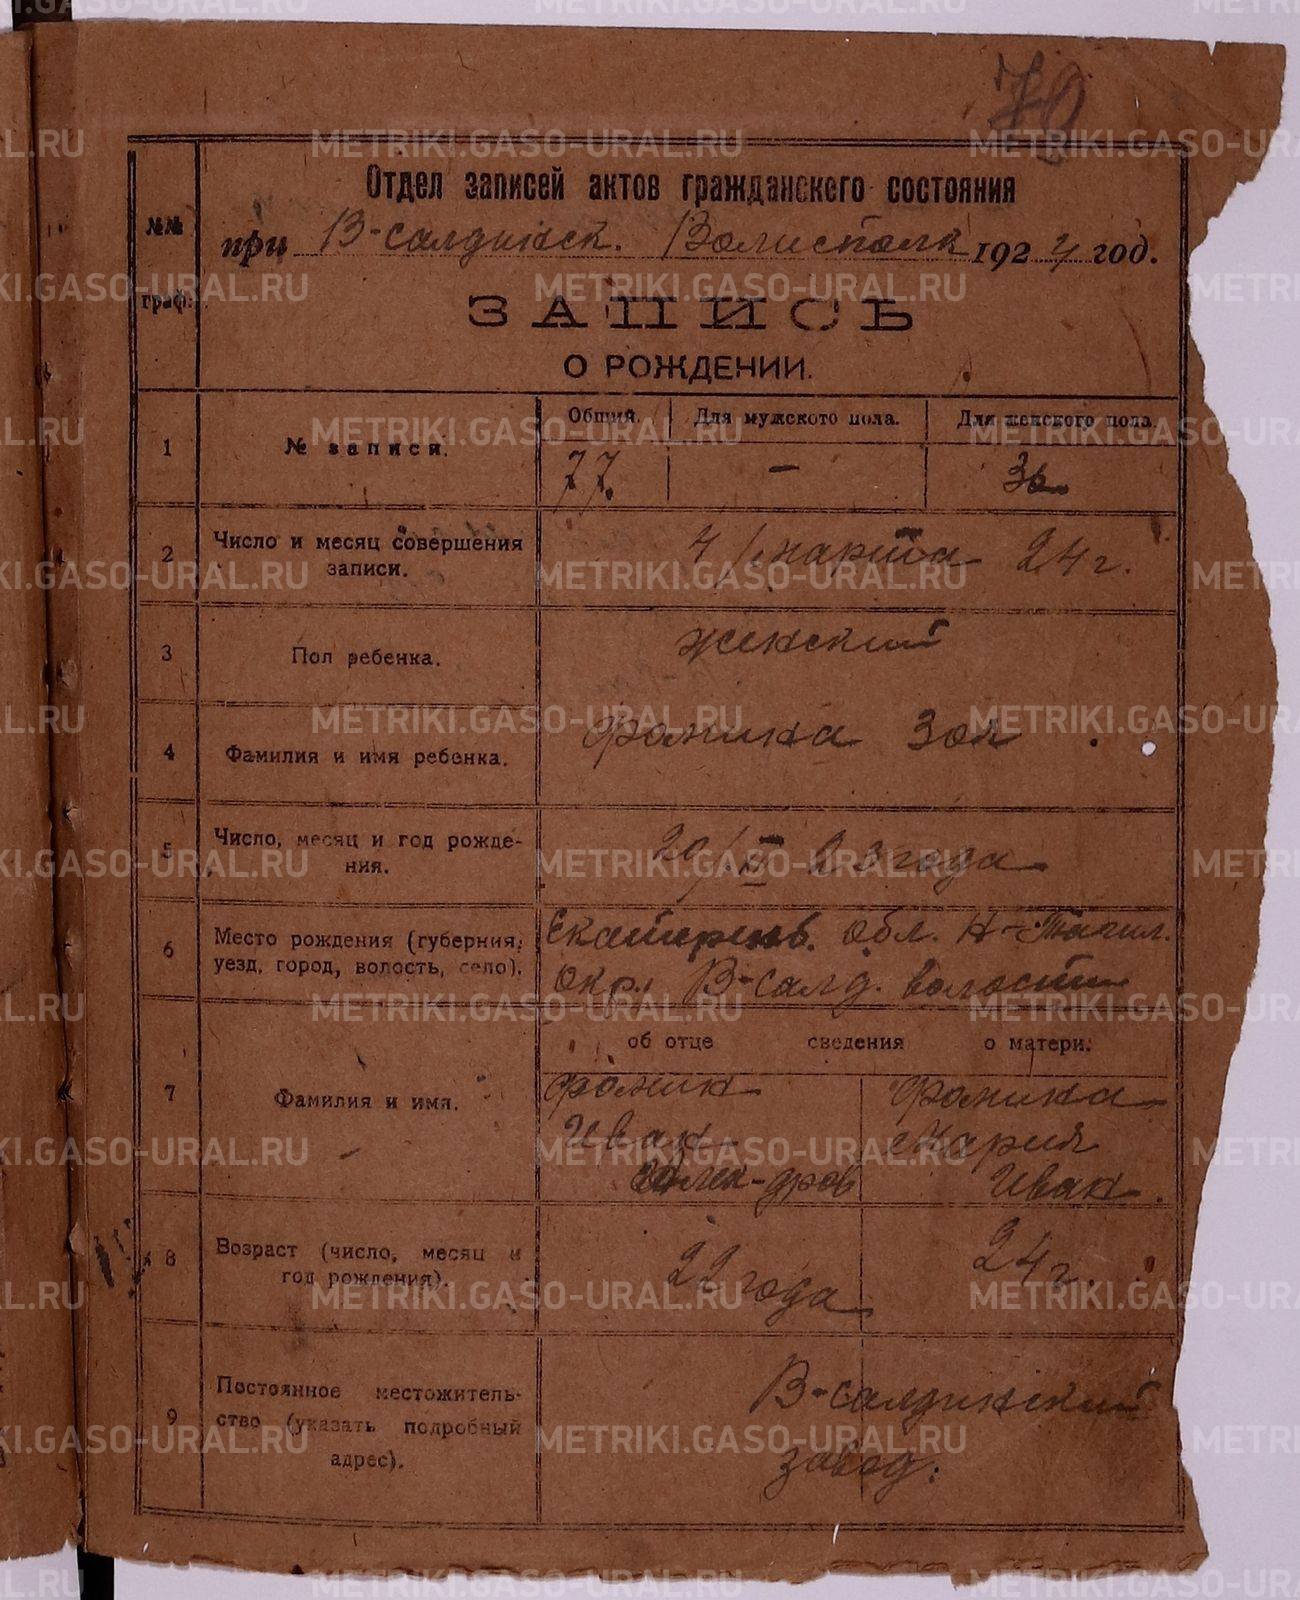 70
Отдел записей актов гражданского состояния
№№ граф.
при В-салдинск. Волисполк 1924 год.
ЗАПИСЬ
О РОЖДЕНИИ.
1
№ записи.
Общий. Для мужского пола. Для женского пола.
77. - 36
2
Число и месяц совершения
записи.
4/марта 24 г.
3
Пол ребенка.
женский
4
Фамилия и имя ребенка.
Фомика Зоя
5
Число, месяц и год рожде-
ния.
23 года
6
Место рождения (губерния,
уезд, город, волость, село).
Екатеринб. Обл. Н-Тагил.
окр., В-салд. волости
об отце сведения о матери.
7
Фамилия и имя.
Фомик
Иван
Алек-дров
Фомика
Мария
Иван.
8
Возраст (число, месяц и
год рождения).
22 года
24 г.
9
Постоянное местожитель-
ство (указать подробный
адрес).
В-салдинский
завод.
METRIKI.GASO-URAL.RU